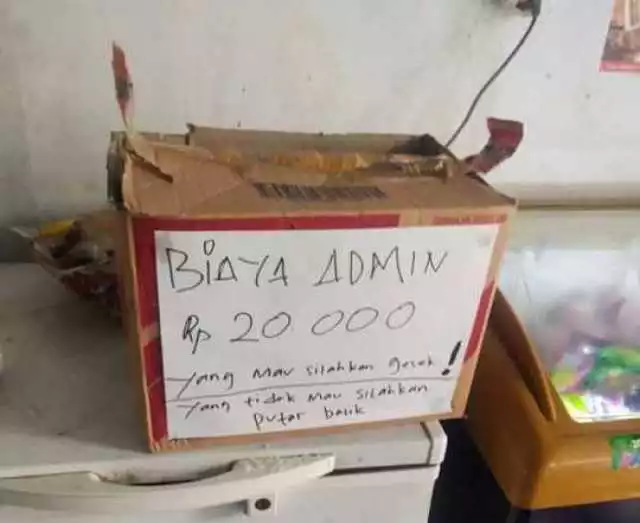 BiAYA ADMIN
Rp 20.000
yang mau silahkan gesek!
yang tidak mau silahkan
putar balik